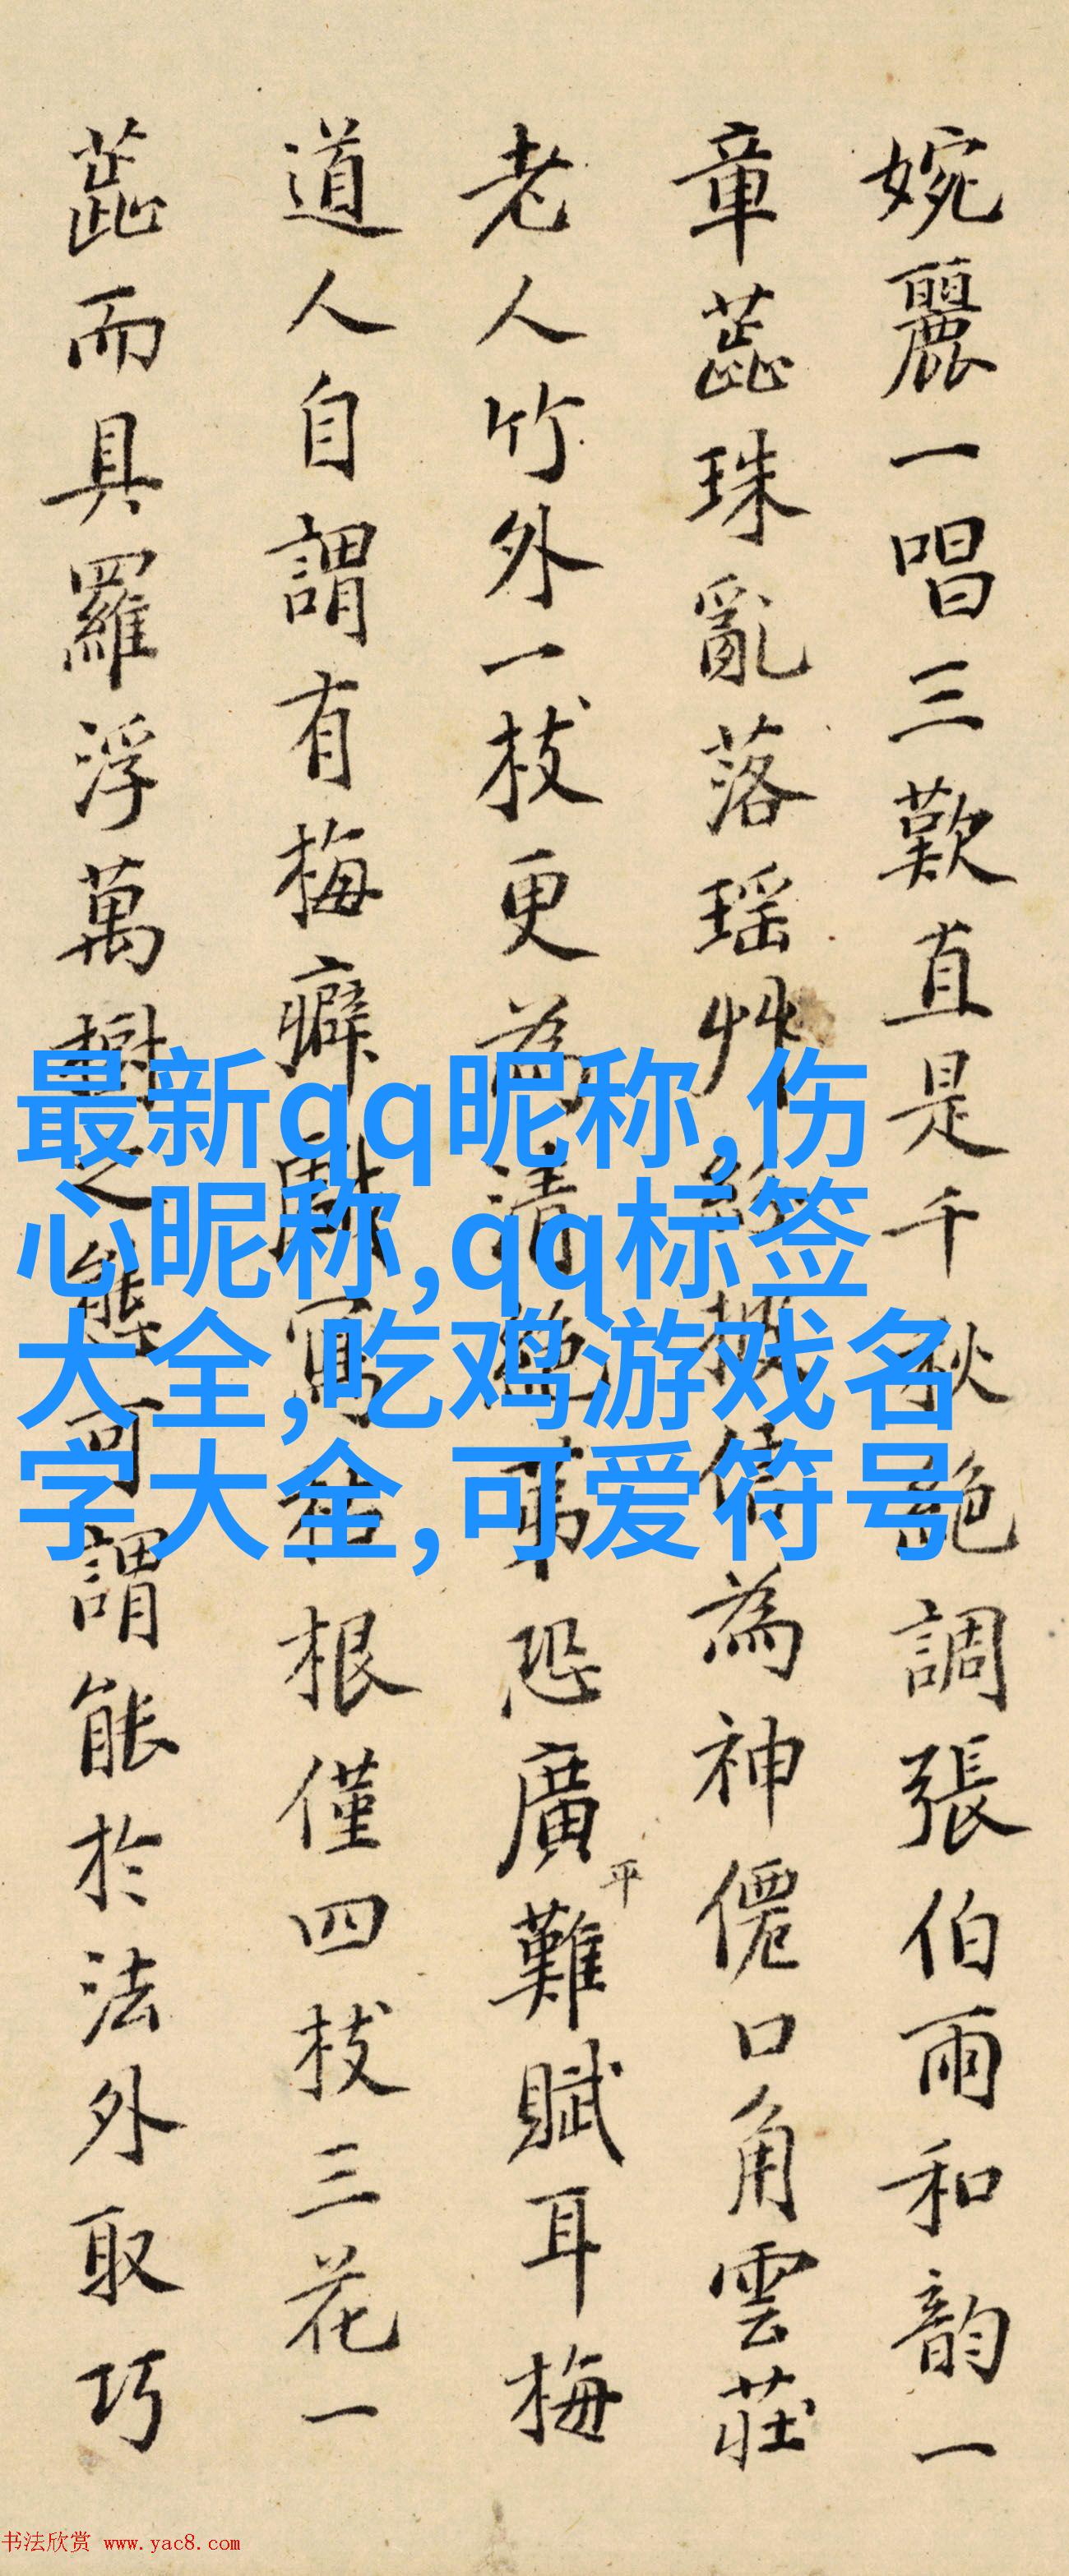 婉麗一唱三歎直是千秋絶調張伯雨和韵一
章蕊珠亂落瑶艸為神僊口角雲莊
老人竹外一枝更為清恐廣平難賦耳梅
道人自謂有梅癖寫根僅四枝三花一
蕊而具羅浮萬樹之態可謂能於法外取巧
最新qq昵称,伤
心昵称,qq标签
大全,吃鸡游戏名
字大全,可爱符号
书法欣赏 www.yac8.com